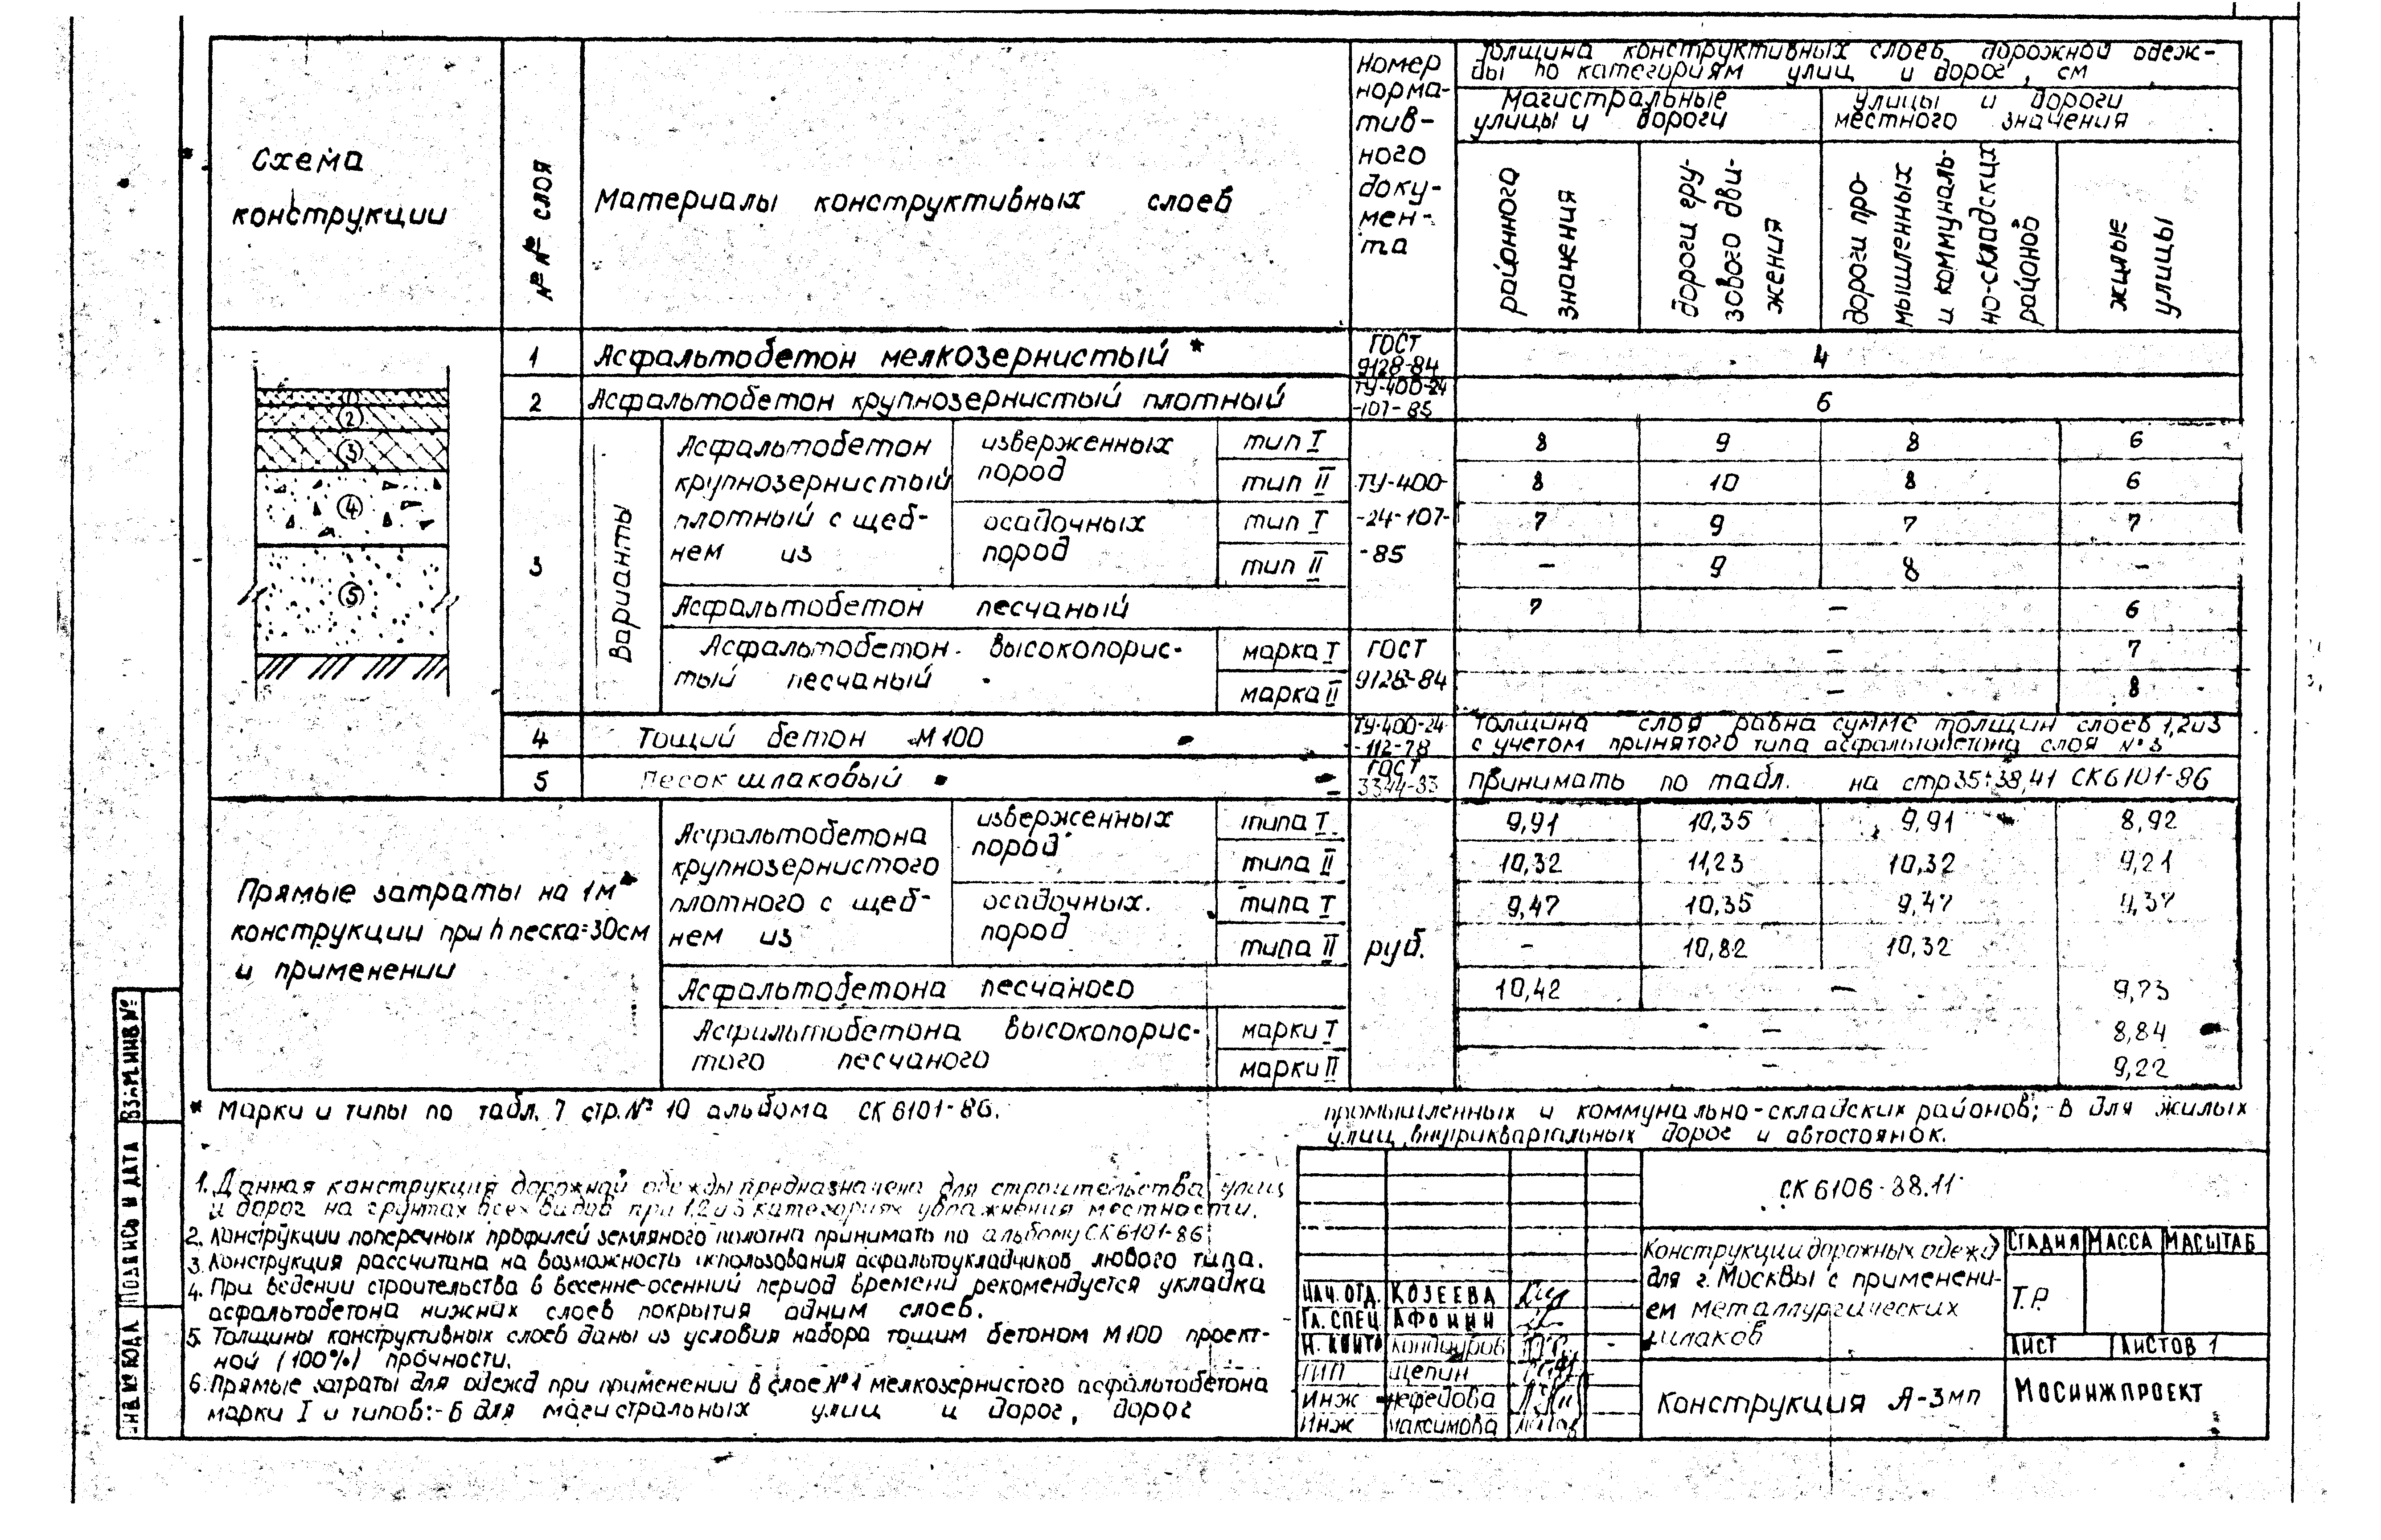 Схема
конструкции
№№ слоя
Материалы конструктивных слоев
Номер
норма-
тив-
ного
доку-
мен-
та
Толщина конструктивных слоев дорожной одеж-
ды по категориям улиц и дорог, см
Магистральные
улицы и дороги
улицы и дороги
местного значения
районного
значения
дороги гру-
зового дви-
жения
дороги про-
мышленных
и коммуналь-
но-складских
районов
жилые
улицы
1 Асфальтобетон мелкозернистый * ГОСТ 9128-84 4
2 Асфальтобетон крупнозернистый плотный ТУ-400-24-107-85 6
3
Варианты
Асфальтобетон
крупнозернистый
плотный с щеб-
нем из
изверженных
пород
осадочных
пород
ТУ-400-
-24-107-
-85
тип I 8 9 8 6
тип II 8 10 8 6
тип I 7 9 7 7
тип II - 9 8 -
Асфальтобетон песчаный 7 - 6
Асфальтобетон высокопорис-
тый песчаный
ГОСТ
9128-84
марка I - 7
марка II - 8
4 Тощий бетон М100 ТУ-400-24-112-78
Толщина слоя равна сумме толщин слоев 1,2и3
с учетом принятого типа асфальтобетона слоя №3
5 Песок шлаковый ГОСТ 3344-83 Принимать по табл. на стр 35÷38,41 СК6101-86
①
②
③
④
⑤
Прямые затраты на 1м²
конструкции при h песка=30см
и применении
Асфальтобетона
крупнозернистого
плотного с щеб-
нем из
изверженных
пород
осадочных
пород
руб.
типа I 9,91 10,35 9,91 8,92
типа II 10,32 11,23 10,32 9,21
типа I 9,47 10,35 9,47 9,37
типа II - 10,82 10,32
Асфальтобетона песчаного 10,42 - 9,73
Асфальтобетона высокопорис-
того песчаного
марки I - 8,84
марки II - 9,22
* Марки и типы по табл. 7 стр.№ 10 альбома СК 6101-86.
1. Данная конструкция дорожной одежды предназначена для строительства улиц
и дорог на грунтах всех видов при 1,2и3 категориях увлажнения местности.
2. Конструкции поперечных профилей земляного полотна принимать по альбому СК6101-86
3. Конструкция рассчитана на возможность использования асфальтоукладчиков любого типа.
4. При ведении строительства в весенне-осенний период времени рекомендуется укладка
асфальтобетона нижних слоев покрытия одним слоем.
5. Толщины конструктивных слоев даны из условия набора тощим бетоном М100 проект-
ной (100%) прочности.
6. Прямые затраты для одежд при применении в слое №1 мелкозернистого асфальтобетона
марки I и типов:- Б для магистральных улиц и дорог, дорог
промышленных и коммунально-складских районов; - В для жилых
улиц, внутриквартальных дорог и автостоянок.
СК 6106-88.11
Конструкции дорожных одежд
для г. Москвы с применени-
ем металлургических
шлаков
СТАДИЯ МАССА МАСШТАБ
Т.Р.
ЛИСТ ЛИСТОВ 1
Конструкция А-3мп
МОСИНЖПРОЕКТ
НАЧ. ОТД. КОЗЕЕВА
ГЛ. СПЕЦ АФОНИН
Н. КОНТР
ГИП Щепин
Инж Нефедова
Инж Максимова
ИНВ № ПОДЛ. ПОДПИСЬ И ДАТА ВЗАМ.ИНВ №